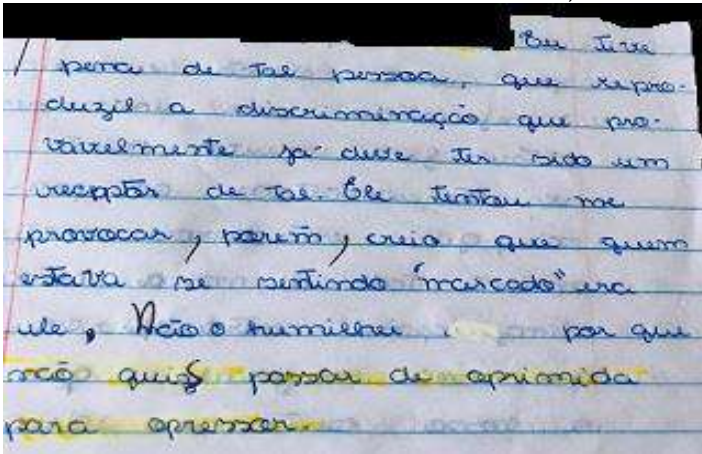 Eu tive
pena de tal pessoa, que repro-
duziu a discriminação que pro-
vavelmente ja deve ter sido um
receptor de tal. Ele tentou me
provocar, porém, creio que quem
estava se sentindo "marcado" era
ele, Não o humilhei por que
não quis passar de oprimida
para opressor.